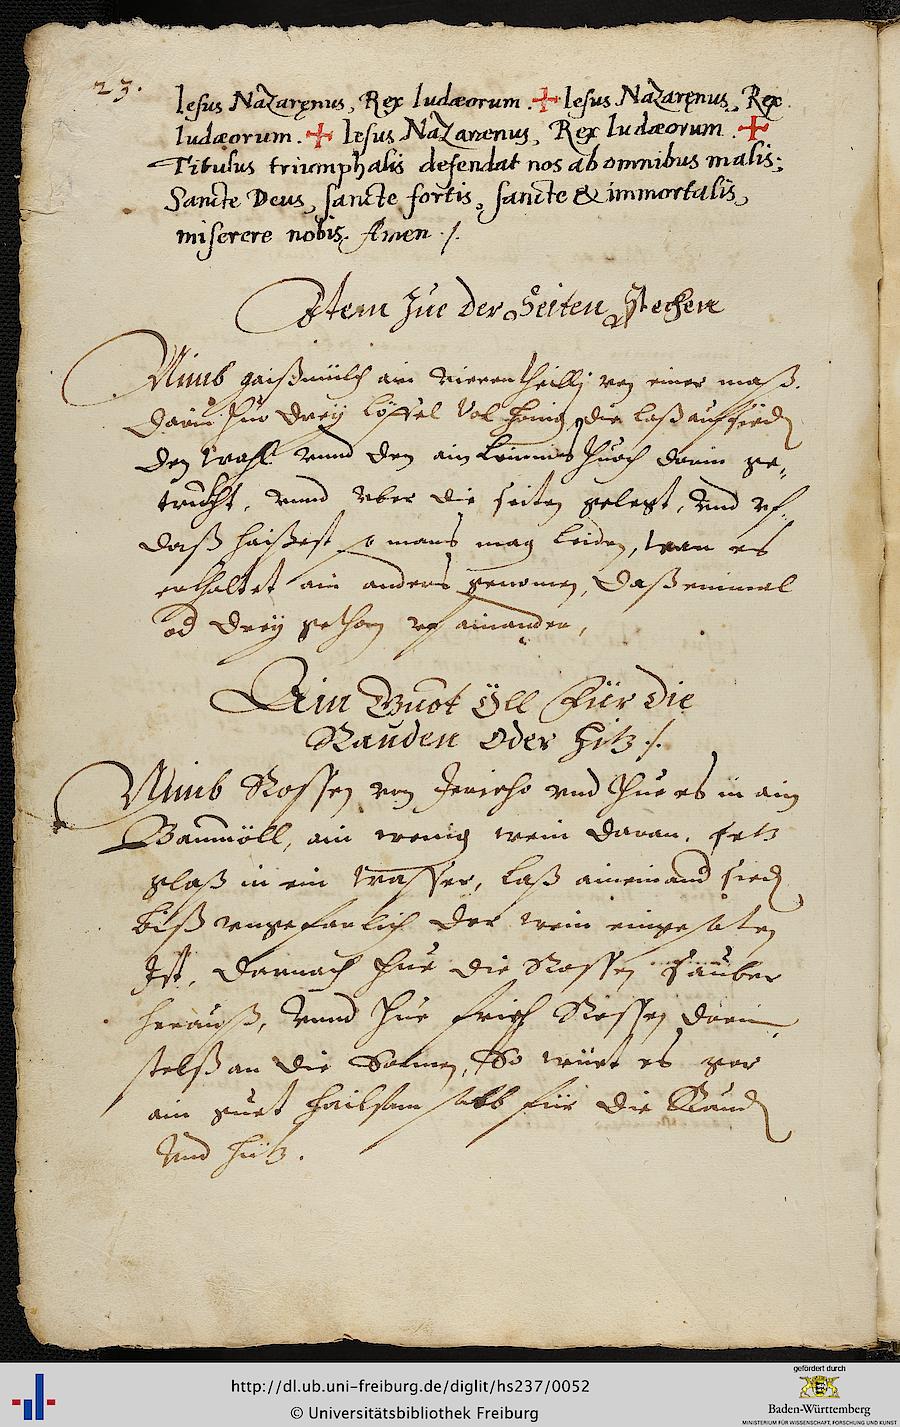 23.
Iesus Nazaręnus, Rex Iudæorum. ✠ Iesus Nazaręnus, Rex
Iudæorum. ✠ Iesus Nazarænus, Rex Iudæorum. ✠
Titulus triumphalis defendat nos ab omnibus malis;
Sancte Deus, sancte fortis, sancte & immortalis,
miserere nobis. Amen ./.
Item Zue der Seiten Stechen
Nimb gaißmilch ain vierentheilly von einer maß.
Darin thuo drey löffel vol honig, die laß auf sieden
den wahl vnnd den ain leinines thuoch darin ge-
truckht, vnnd vber die seiten gelegt, vnd vf
daß haißest so mans mag leiden, wan es
erkaltet ain anders genomen, daß einmal
od drey gethon vf ainander,
Ein Guot Öll Für die
Rauden oder hitz ./.
Nimb Rossen von Jericho vnd thue es in ain
Baumöll, ain wenig wein daran, setz
glaß in ein wasser, laß aineinand sieden
biß vngefarlich der wein eingesoten
Ist, darnach thue die Rossen sauber
herauß, vnnd thue frisch Rossen darin,
stelß an die Sonnen, So würt es gar
ain guet hailsam salb für die Rauden
vnd hitz.
http://dl.ub.uni-freiburg.de/diglit/hs237/0052
© Universitätsbibliothek Freiburg
gefördert durch
Baden-Württemberg
MINISTERIUM FÜR WISSENSCHAFT, FORSCHUNG UND KUNST